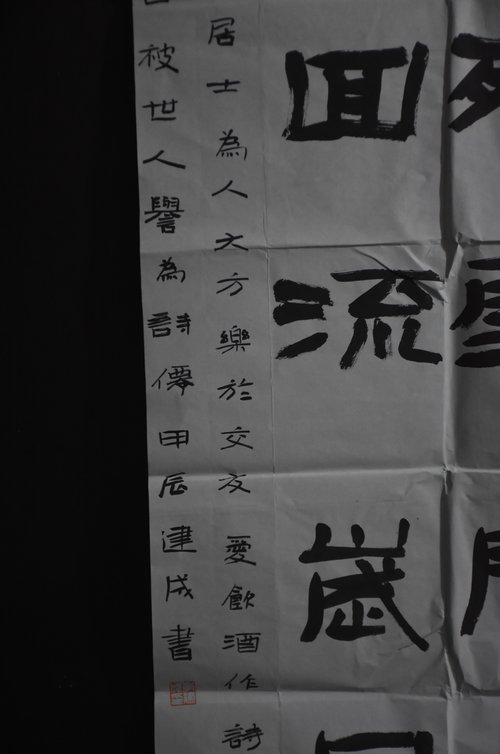 回流歲
居士為人大方樂於交友愛飲酒作詩
被世人譽為詩僊甲辰建成書